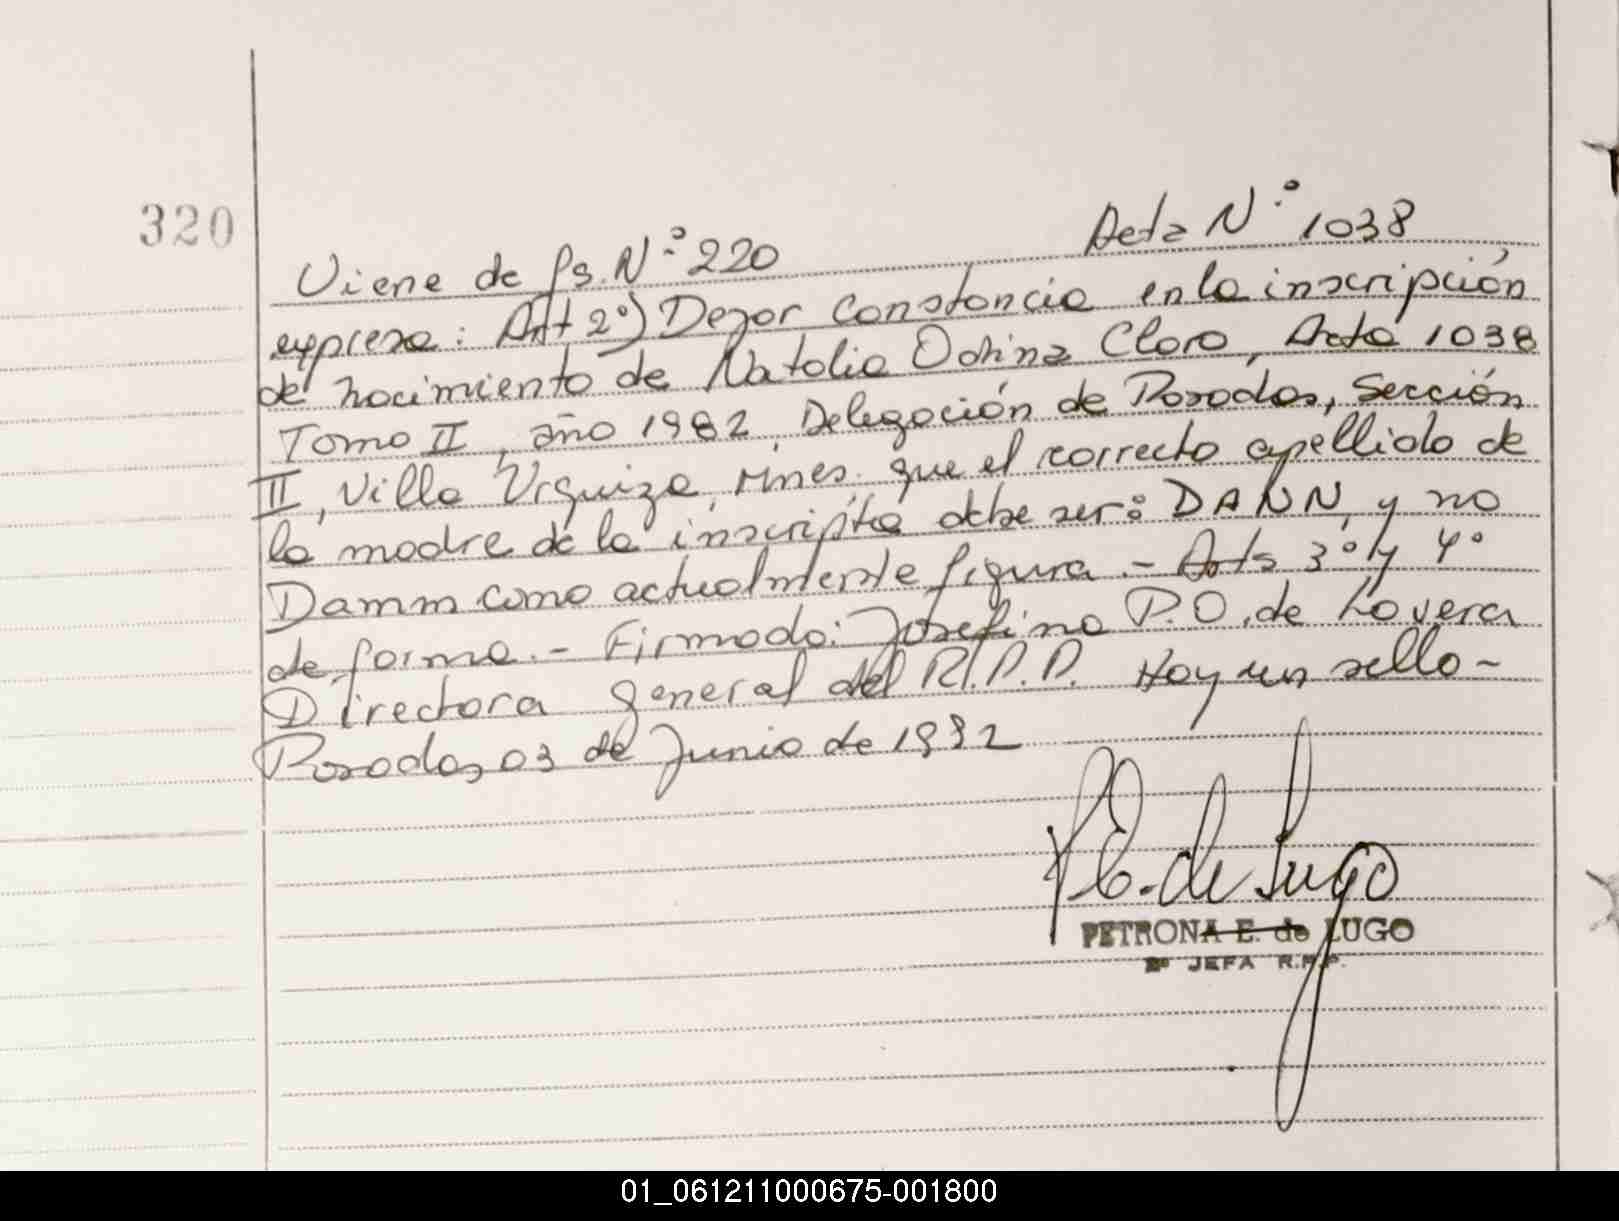 320
Viene de fs. N° 220 Acta N° 1038
expresa: Art 2°) Dejar constancia en la inscripción
de nacimiento de Natalia Odina Claro, Acta 1038
Tomo II, año 1982, Delegación de Posadas, Sección
II, Villa Urquiza, Mnes. que el correcto apellido de
la madre de la inscripta debe ser: DANN, y no
Damm como actualmente figura.- Arts 3° y 4°
de forma.- Firmado: Josefina P.O. de Lovera
Directora general del R.P.P. Hay un sello-
Posadas 03 de Junio de 1992
P E. de Lugo
PETRONA E. de LUGO
JEFA R.P.P.
01_061211000675-001800